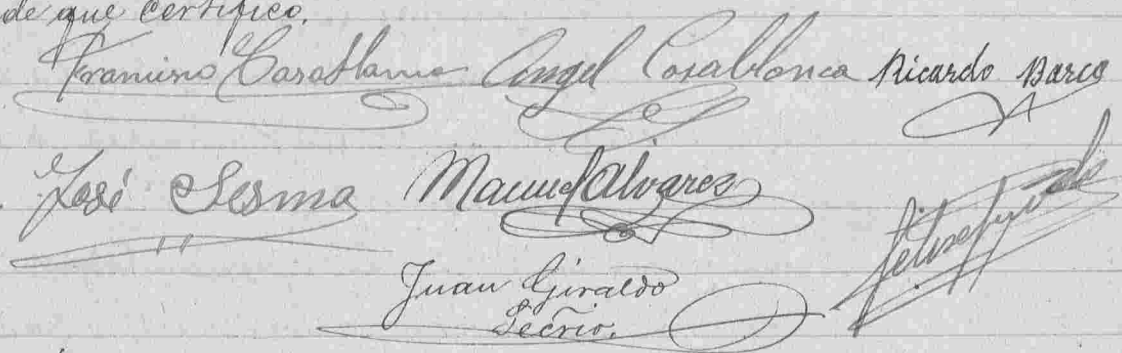 de que certifico.
Francisco Casablanca Angel Casablanca Ricardo Barco
José Sesma Manuel Alvarez
Juan Giraldo
Secrio.